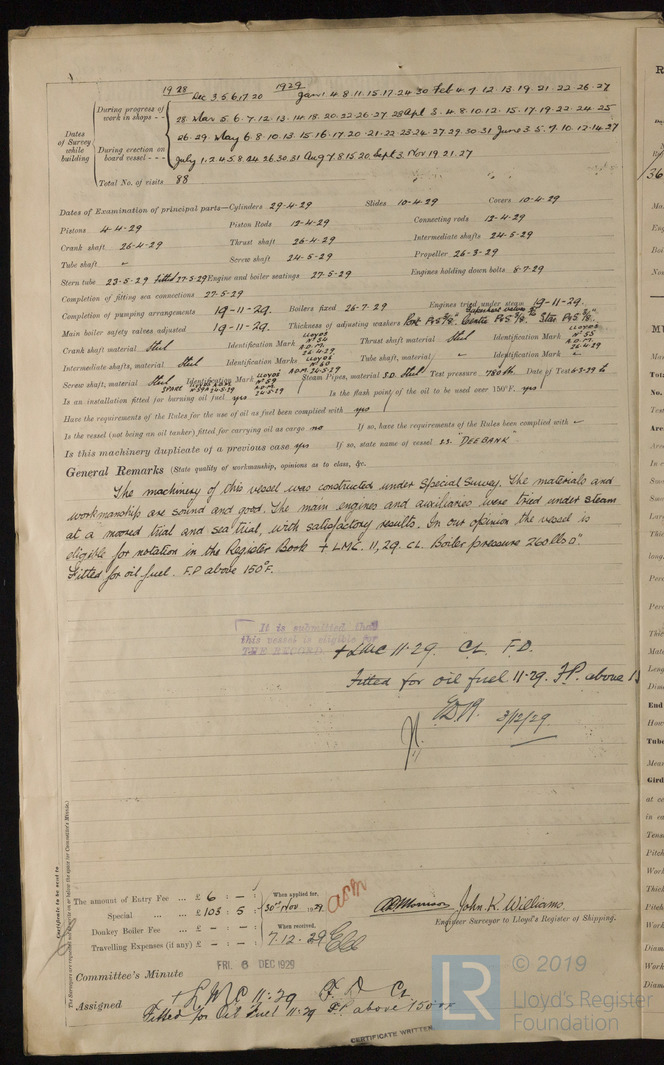 1928 1929
Dates of Survey while building
During progress of work in shops - - Dec 3. 5. 6. 17. 20 Jan 1. 4. 8. 11. 15. 17. 24. 30 Feb 4. 7. 12. 13. 19. 21. 22. 26. 27
28 Mar 5. 6. 7. 12. 13. 14. 18. 20. 22. 26. 27 28 Apl 3. 4. 8. 10. 12. 15. 17. 19. 22. 24. 25
During erection on board vessel - - - 26. 29. May 6. 8. 10. 13. 15. 16. 17. 20. 21. 22 23. 24. 27. 29. 30. 31 June 3. 5. 7. 10. 12. 14. 27
July 1. 2. 4. 5. 8. 26. 30. 31 Aug 7. 8. 15. 20. Sept 3. Nov 19. 21. 27
Total No. of visits 88
Dates of Examination of principal parts—Cylinders 29-4-29 Slides 10-4-29 Covers 10-4-29
Pistons 4-4-29 Piston Rods 12-4-29 Connecting rods 12-4-29
Crank shaft 26-4-29 Thrust shaft 26-4-29 Intermediate shafts 24-5-29
Tube shaft - Screw shaft 24-5-29 Propeller 26-3-29
Stern tube 23-5-29 Fitted 27-5-29 Engine and boiler seatings 27-5-29 Engines holding down bolts 8-7-29
Completion of fitting sea connections 27-5-29
Completion of pumping arrangements 19-11-29. Boilers fixed 26-7-29 Engines tried under steam 19-11-29.
Main boiler safety valves adjusted 19-11-29. Thickness of adjusting washers Port P&S 3/8" Centre P&S 3/8" Star P&S 3/8".
Crank shaft material Steel Identification Mark LLOYDS No 54 A.D.M. 26.4.29 Thrust shaft material Steel Identification Mark LLOYDS No 55 A.D.M. 26.4.29
Intermediate shafts, material Steel Identification Marks LLOYDS A.D.M. 24-5-29 Tube shaft, material - Identification Mark -
Screw shaft, material Steel Identification Mark LLOYDS No 59 A.D.M. 24-5-29 Steam Pipes, material S.D. Steel Test pressure 780 lb Date of Test 6-3-29
SPARE
Is an installation fitted for burning oil fuel yes Is the flash point of the oil to be used over 150°F. yes
Have the requirements of the Rules for the use of oil as fuel been complied with yes
Is the vessel (not being an oil tanker) fitted for carrying oil as cargo no If so, have the requirements of the Rules been complied with -
Is this machinery duplicate of a previous case yes If so, state name of vessel S.S. "DEEBANK"
General Remarks (State quality of workmanship, opinions as to class, &c.
The machinery of this vessel was constructed under Special Survey. The materials and
workmanship are sound and good. The main engines and auxiliaries were tried under steam
at a moored trial and sea trial, with satisfactory results. In our opinion the vessel is
eligible for notation in the Register Book + LMC. 11,29. CL. Boiler pressure 260 lbs □".
Fitted for oil fuel. F.P. above 150°F.
It is submitted that
this vessel is eligible for
THE RECORD. + LMC 11.29. CL. F.D.
Fitted for oil fuel 11.29. F.P. above 15
3/12/29.
Certificate to be sent to
The Surveyors are requested not to write on or below the space for Committee's Minute.
The amount of Entry Fee ... £ 6 : - : When applied for,
Special ... ... £ 105 : 5 : 30th Nov 1929
Donkey Boiler Fee ... £ - : - : When received,
Travelling Expenses (if any) £ - : - : 7.12.29
John K. Williams
Engineer Surveyor to Lloyd's Register of Shipping.
Committee's Minute FRI. 6 DEC 1929
Assigned + L.M.C. 11.29 F.D. CL
Fitted for Oil Fuel 11.29 F.P. above 150°F
CERTIFICATE WRITTEN.
LR © 2019
Lloyd's Register
Foundation